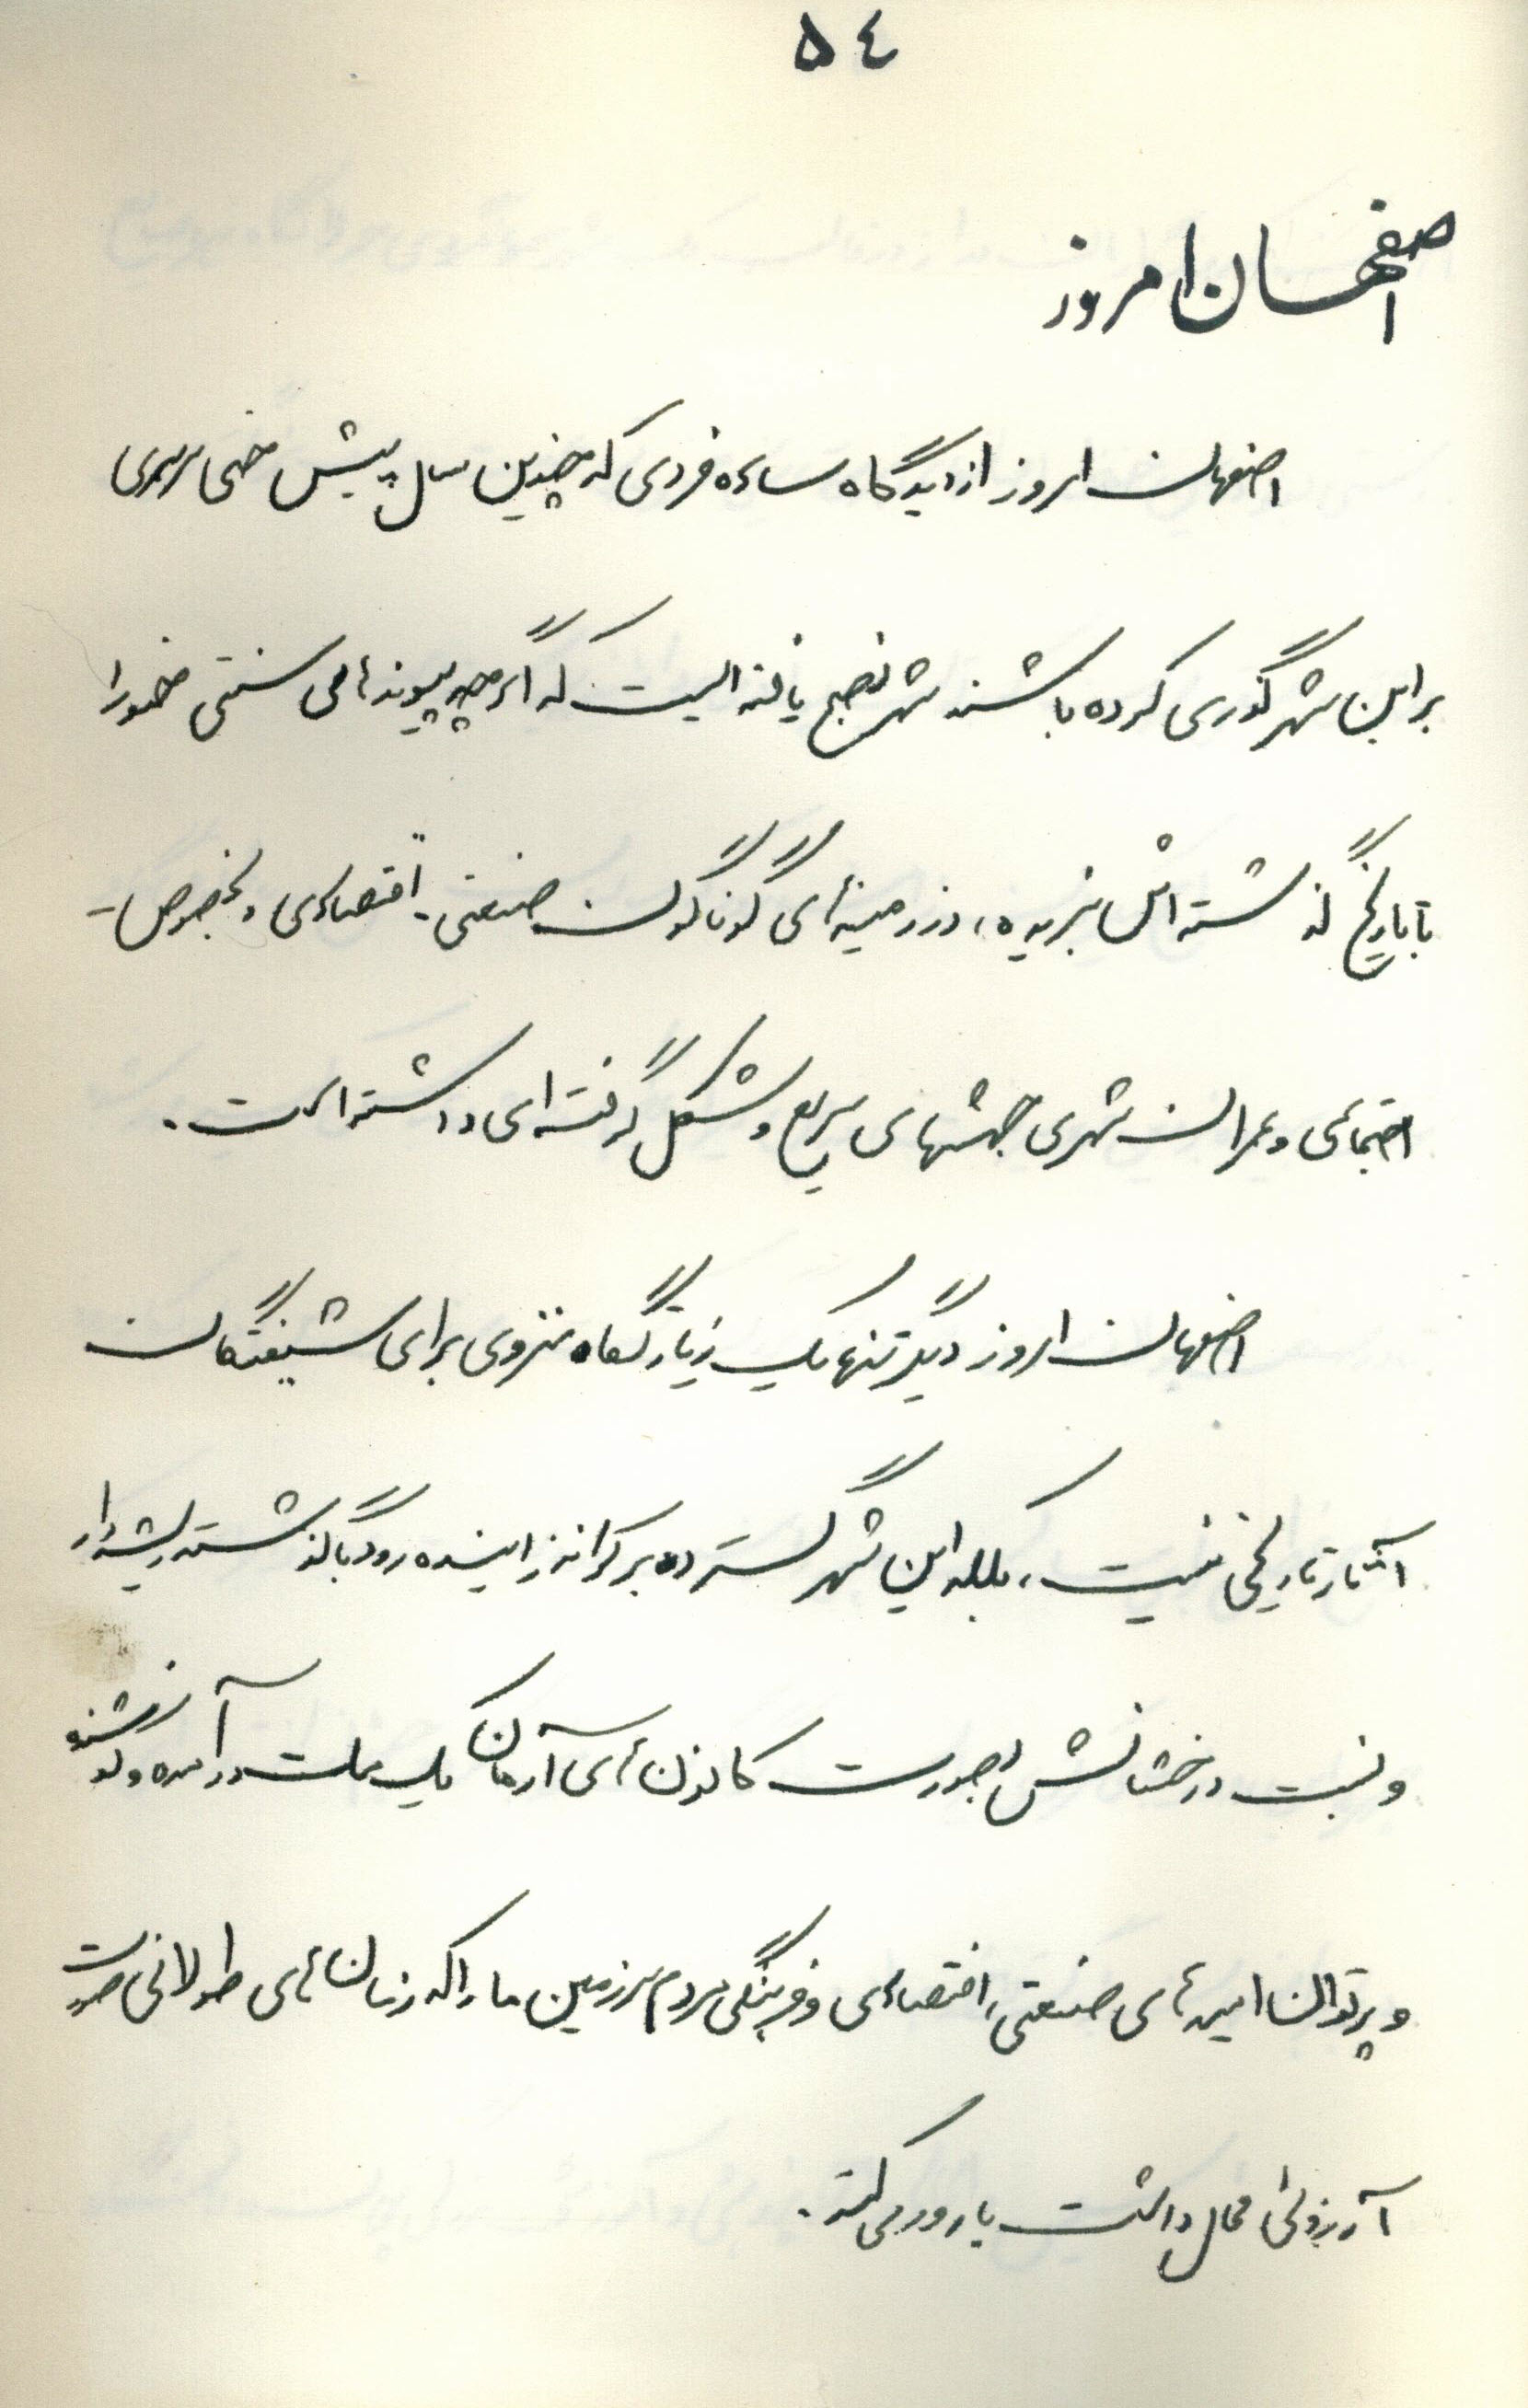 ٥٤
اصفهان امروز
اصفهان امروز از دیدگاه ساده فردی که چندین سال پیش حتی سرسری
بر این شهر گذری کرده باشند شهر نضج یافته ایست که اگرچه پیوندهای سنتی خود را
با تاریخ گذشته اش نبریده، در زمینه‌های گوناگون صنعتی - اقتصادی و بخصوص -
اجتماعی و عمران شهری جهشهای سریع و شکل گرفته‌ای داشته است.
اصفهان امروز دیگر تنها یک زیارتگاه منزوی برای شیفتگان
آثار تاریخی نیست، بلکه این شهر گسترده بر کرانه زاینده رود با گذشته ریشه‌دار
و درخشانش بصورت کانون‌های آرمان یک ملت درآمده و
و پرتوان امیدهای صنعتی، اقتصادی و فرهنگی مردم سرزمین ما را که زمان‌های طولانی صورت
آرزوئی محال داشت بارور می‌کند.